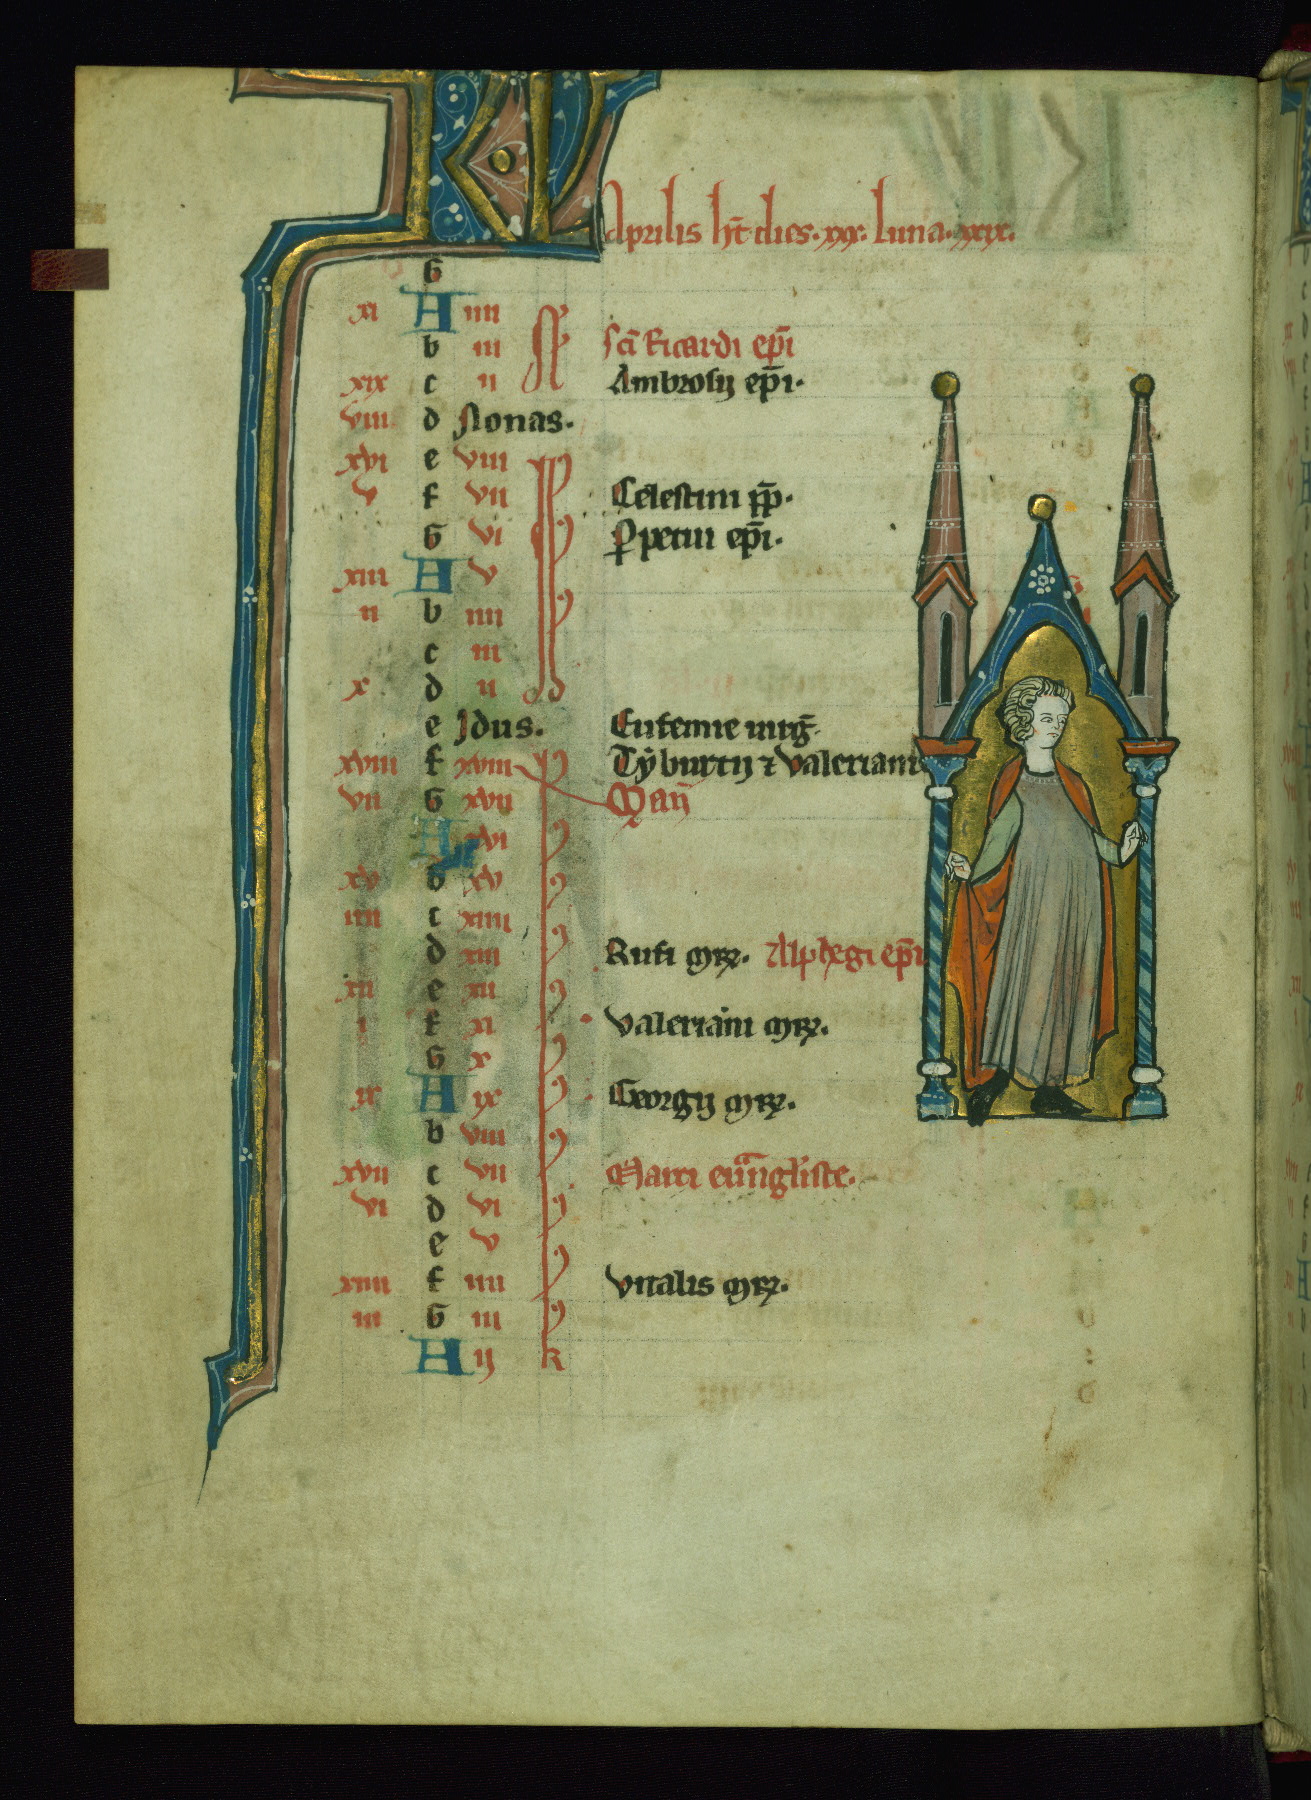 KL Aprilis h̄t dies. xxx. luna. xxix.
G
xi A iiii N
b iii sc̄i Ricardi ep̄i
xix c ii Ambrosij ep̄i.
viii d Nonas.
xvi e viii
v f vii Celestini p̄p.
G vi Ꝑpetui ep̄i.
xiii A v
ii b iiii
c iii
x d ii
e Idus. Eufemie uirḡ.
xviii f xviii Tẏburtij ⁊ Valeriani
vii G xvii Maij
A xvi
xv b xv
iiii c xiiii
d xiii Rufi mr̄. Alphegi ep̄i
xii e xii
i f xi Valeriani mr̄.
G x
ix A ix Georgij mr̄.
b viii
xvii c vii Marci euangliste.
vi d vi
e v
xiiii f iiii Vitalis mr̄.
iii G iii
A ij k